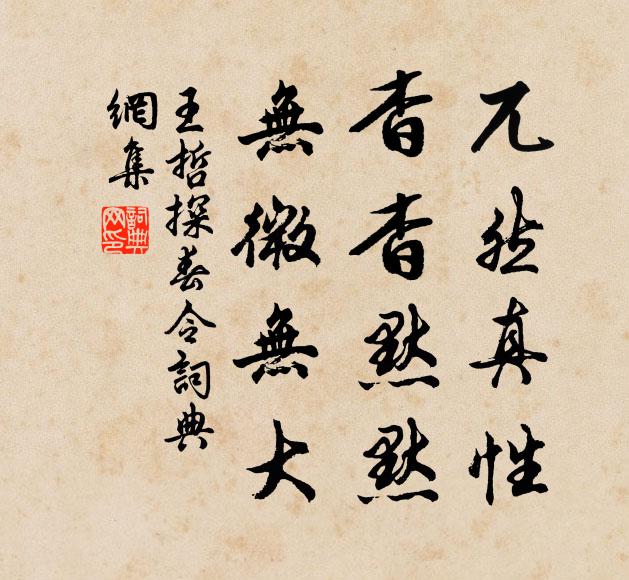 兀然真性
杳杳默默
無微無大
王哲探春令詞典
網集
詞典
网印